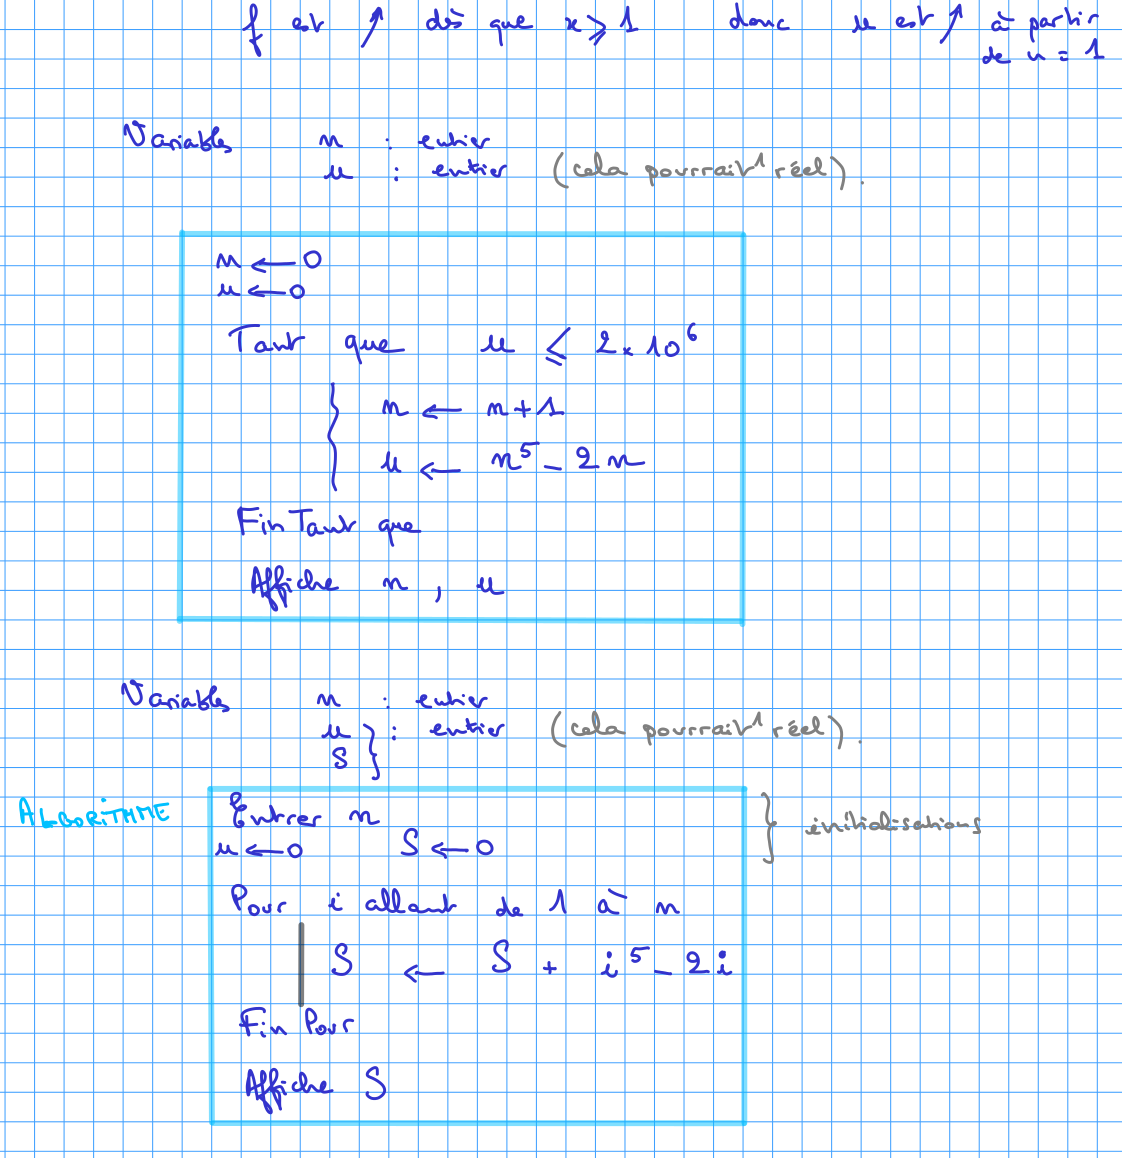 f est ↗ dès que x ⩾ 1 donc u est ↗ à partir
de n = 1
Variables n : entier
u : entier (cela pourrait^ réel).
n ← 0
u ← 0
Tant que u ⩽ 2×10⁶
n ← n+1
u ← n⁵ - 2n
Fin Tant que
Affiche n, u
Variables n : entier
u } : entier (cela pourrait^ réel).
S
ALGORITHME
Entrer n
u ← 0 S ← 0 } initialisations
Pour i allant de 1 à n
S ← S + i⁵ - 2i
Fin Pour
Affiche S